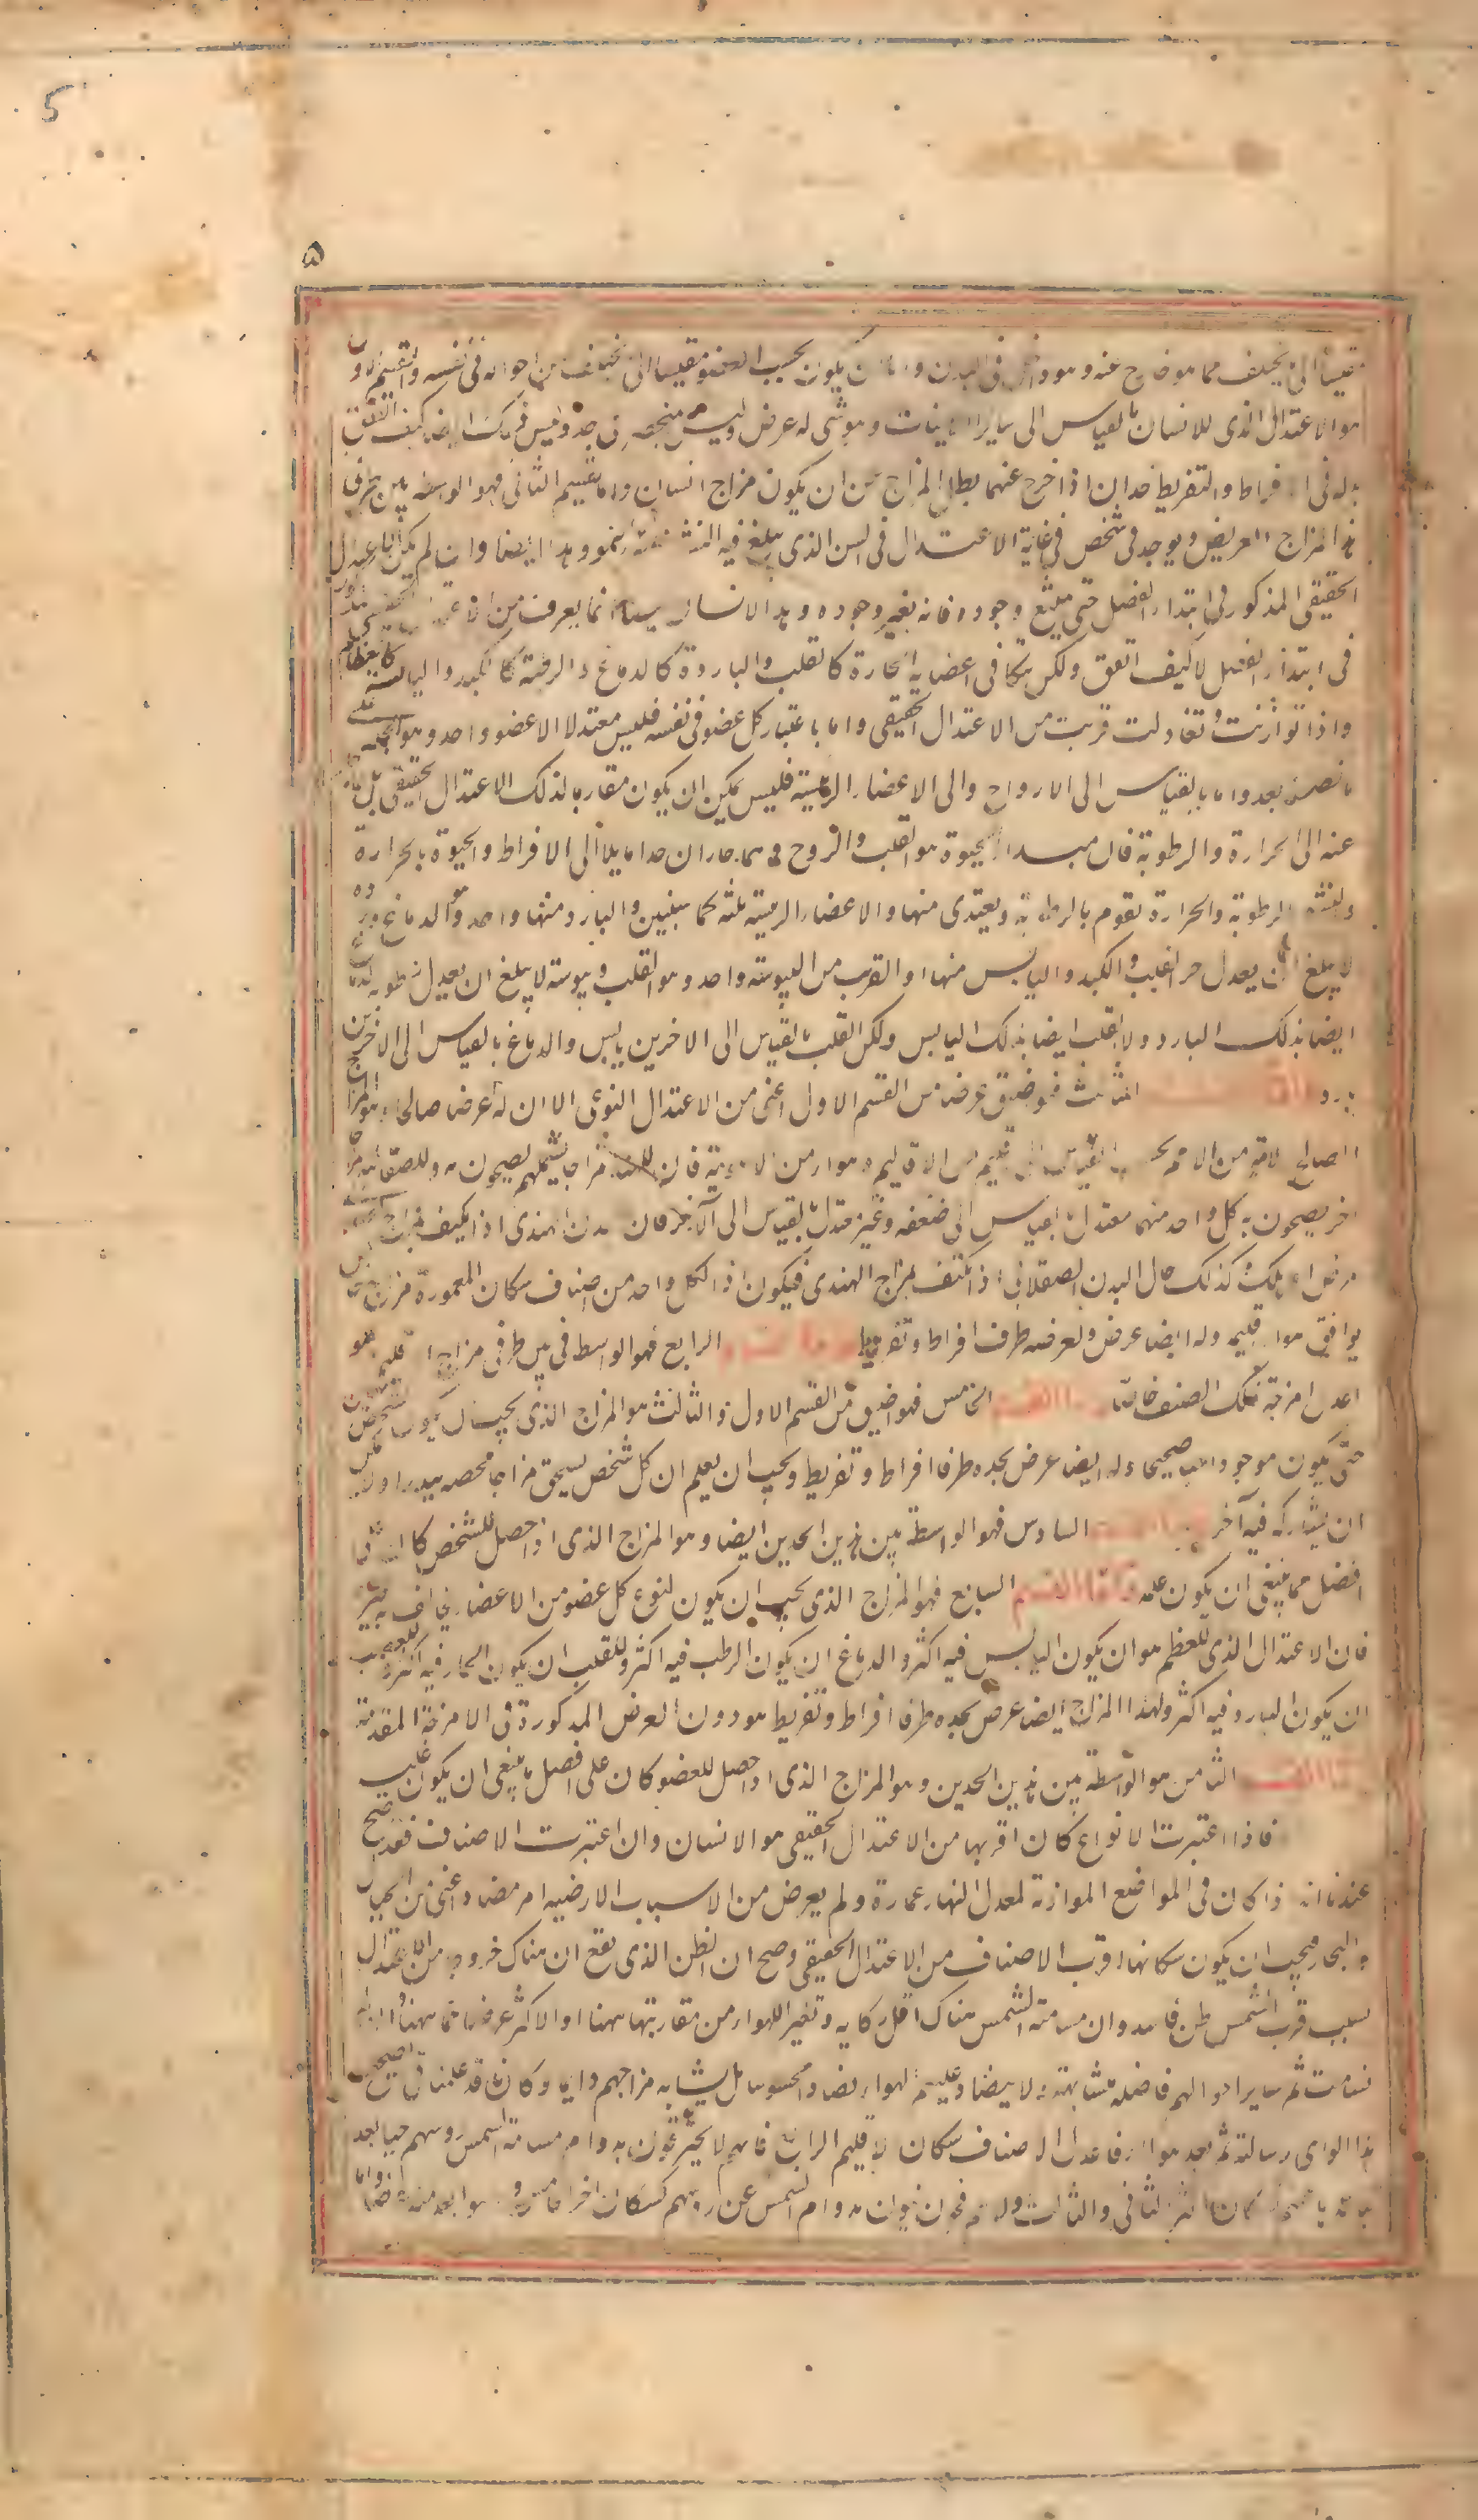 5
۵
مقيسا الى ما يختلف مما هو خارج عنه وهو داخل فى البدن واما ان يكون بحسب العضو مقيسا الى مختلف من احواله فى نفسه والقسم الاول
هو الاعتدال الذى للانسان بالقياس الى ساير الكاينات وهو شى له عرض وليس منحصر فى حد وليس ذلك ايضا كيف اتفق
بل له فى الافراط والتفريط حدان اذا خرج عنهما بطل المزاج عن ان يكون مزاج انسان واما القسم الثانى فهو الواسطة بين طرفى
هذا المزاج العريض ويوجد فى شخص فى غاية الاعتدال فى السن الذى يبلغ فيه النشو غاية النمو وهذا ايضا وان لم يكن الاعتدال
الحقيقى المذكور فى ابتداء الفصل حتى يمتنع وجوده فانه يعسر وجوده وهذا الانسان ايضا انما يقرب من الاعتدال الحقيقى المذكور
فى ابتداء الفصل لا كيف اتفق ولكن يتكافى اعضاؤه الحارة كالقلب والباردة كالدماغ والرطبة كالكبد واليابسة كالعظام
واذا توازنت وتعادلت قربت من الاعتدال الحقيقى واما باعتبار كل عضو فى نفسه فليس معتدلا الا عضو واحد وهو الجلد على
ما نصفه بعد واما بالقياس الى الارواح والى الاعضاء الرئيسة فليس يمكن ان يكون مقاربا لذلك الاعتدال الحقيقى بل خارجا
عنه الى الحرارة والرطوبة فان مبدا الحيوة هو القلب والروح وهما حاران جدا مايلان الى الافراط والحيوة بالحرارة
والنشو بالرطوبة والحرارة تقوم بالرطوبة وتغتذى منها والاعضاء الرئيسة ثلثة كما سنبين والبارد منها واحد وهو الدماغ وبرده
لا يبلغ ان يعدل حر القلب والكبد واليابس منها او القريب من اليبوسة واحد وهو القلب ويبوسته لا يبلغ ان يعدل رطوبة الدماغ
ايضا بذلك البارد ولا القلب ايضا بذلك اليابس ولكن القلب بالقياس الى الاخرين يابس والدماغ بالقياس الى الاخرين
بارد واما القسم الثالث فهو اضيق عرضا من القسم الاول اعنى من الاعتدال النوعى الا ان له عرضا صالحا وهو المزاج
الصالح لامة من الامم بحسب القياس الى اقليم من الاقاليم وهواء من الاهوية فان للهند مزاجا يشملهم يصحون به وللصقالبة مزاجا
اخر يصحون به كل واحد منهما معتدل بالقياس الى صنفه وغير معتدل بالقياس الى الآخر فان بدن الهندى اذا تكيف بمزاج الصقلابى
مرض او هلك كذلك حال البدن الصقلابى اذا تكيف بمزاج الهندى فيكون اذا لكل واحد من اصناف سكان المعمورة مزاج خاص
يوافق هواء اقليمه وله ايضا عرض ولعرضه طرفا افراط وتفريط واما القسم الرابع فهو الواسط فى بين طرفى مزاج الاقليم وهو
اعدل امزجة ذلك الصنف خاصة واما القسم الخامس فهو اضيق من القسم الاول والثالث وهو المزاج الذى يجب ان يكون لشخص معين
حتى يكون موجودا حيا صحيحا وله ايضا عرض يحده طرفا افراط وتفريط ويجب ان يعلم ان كل شخص يستحق مزاجا يخصه يندر او لا يمكن
ان يشاركه فيه آخر واما القسم السادس فهو الواسطة بين هذين الحدين ايضا وهو المزاج الذى اذا حصل للشخص كان على
افضل مما ينبغى ان يكون عليه واما القسم السابع فهو المزاج الذى يجب ان يكون لنوع كل عضو من الاعضاء يخالف به غيره
فان الاعتدال الذى للعظم هو ان يكون اليابس فيه اكثر والدماغ ان يكون الرطب فيه اكثر وللقلب ان يكون الحار فيه اكثر وللعصب
ان يكون البارد فيه اكثر ولهذا المزاج ايضا عرض يحده طرفا افراط وتفريط هو دون العرض المذكورة فى الامزجة المقدمة
واما القسم الثامن هو الواسطة بين هذين الحدين وهو المزاج الذى اذا حصل للعضو كان على افضل ما ينبغى ان يكون عليه
فاذا اعتبرت الانواع كان اقربها من الاعتدال الحقيقى هو الانسان وان اعتبرت الاصناف فقد صح
عندنا انه اذا كان فى المواضع الموازية لمعدل النهار عمارة ولم يعرض من الاسباب الارضيه امر مضاد اعنى من الجبال
والبحار فيجب ان يكون سكانها اقرب الاصناف من الاعتدال الحقيقى وصح ان الظن الذى يقع ان هناك خروجا من الاعتدال
بسبب قرب الشمس ظن فاسد وان مسامتة الشمس هناك اقل نكاية وتغير اللهواء من مقاربتها ههنا او الاكثر عرضا مما ههنا وان لم
تسامت ثم ساير احوالهم فاضلة متشابهة ولا يضاد عليهم الهواء تضادا محسوسا بل يشابه مزاجهم دايما وكنا قد علمنا فى تصحيح
هذا الراى رسالة ثم بعد هؤلاء فاعدل الاصناف سكان الاقليم الرابع فانهم لا يحترقون بدوام مسامتة الشمس روسهم حينا بعد
تباعدها عنهم كسكان اكثر الثانى والثالث ولا هم فجون نيون بدوام الشمس عن روسهم كسكان اخر الخامس وما هو ابعد منه عرضا واما